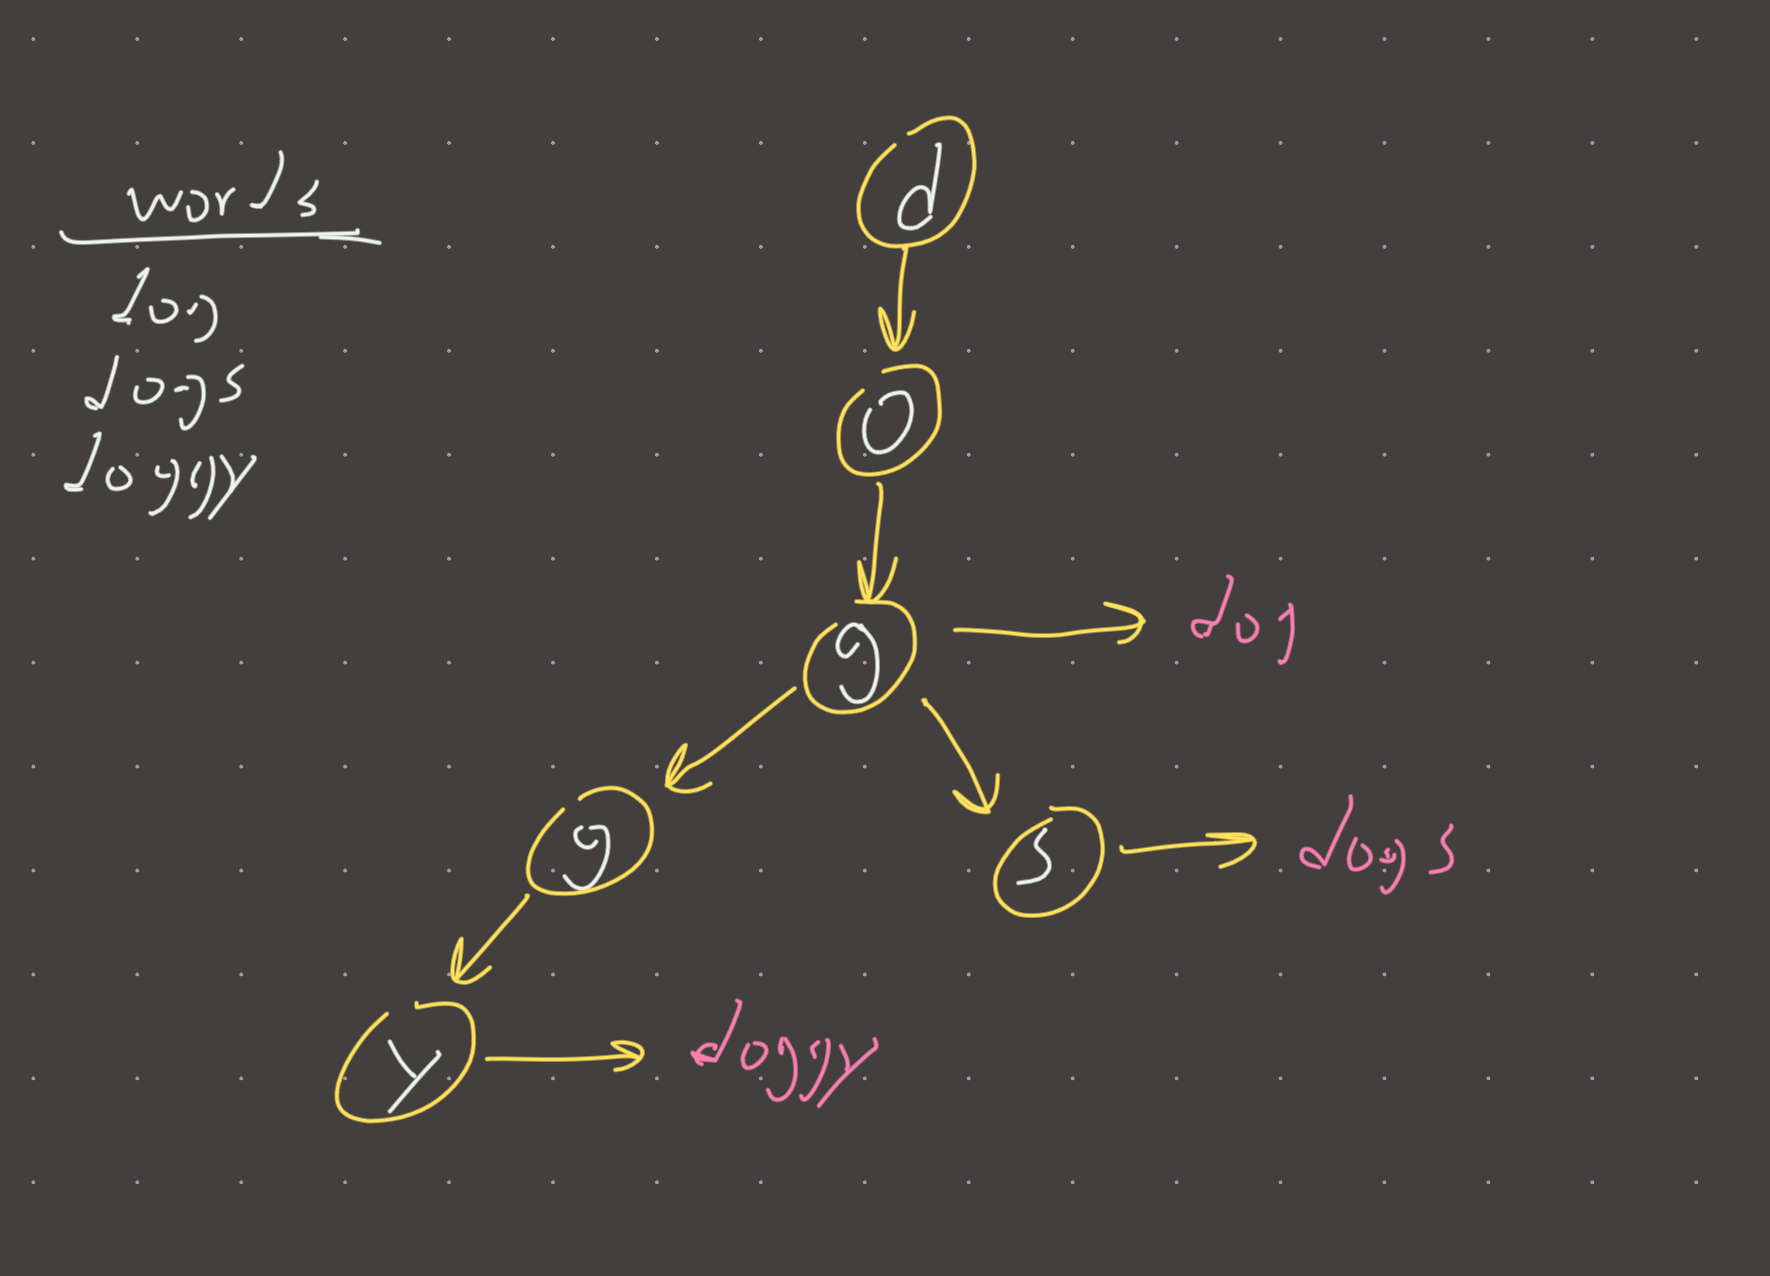 words
dog
dogs
doggy
d
o
g
dog
g
s
dogs
y
doggy